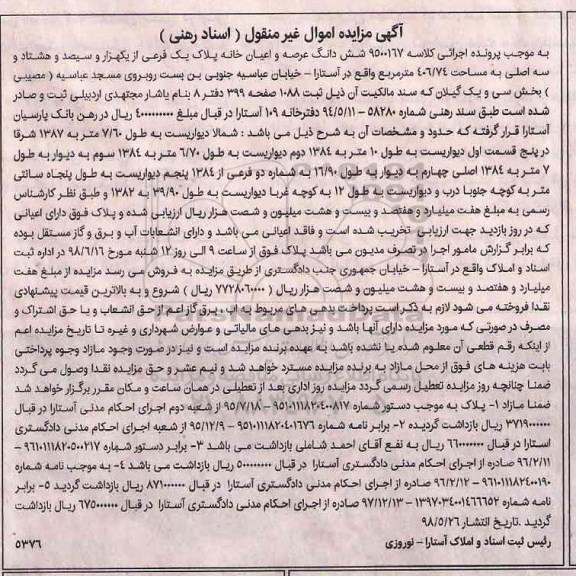 آگهی مزایده اموال غیر منقول ( اسناد رهنی )
به موجب پرونده اجرائی کلاسه ۹۵۰۰۱۶۷ شش دانگ عرصه و اعیان خانه پلاک یک فرعی از یکهزار و سیصد و هشتاد و
سه اصلی به مساحت ۴۰۶/۷۴ مترمربع واقع در آستارا – خیابان عباسیه جنوبی بن بست روبروی مسجد عباسیه ( مصیبی
) بخش سی و یک گیلان که سند مالکیت آن ذیل ثبت ۱۰۸۸ صفحه ۳۹۹ دفتر ۸ بنام یاشار مجتهدی اردبیلی ثبت و صادر
شده است طبق سند رهنی شماره ۵۸۲۸۰ – ۹۴/۵/۱۱ دفترخانه ۱۰۹ آستارا در قبال مبلغ ریال در رهن بانک پارسیان
آستارا قرار گرفته که حدود و مشخصات آن به شرح ذیل می باشد : شمالا دیواریست به طول ۷/۶۰ متر به ۱۳۸۷ شرقا
در پنج قسمت اول دیواریست به طول ۱۰ متر به ۱۳۸۴ دوم دیواریست به طول ۶/۷۰ متر به ۱۳۸۴ سوم به دیوار به طول
۷ متر به ۱۳۸۴ اصلی چهارم به دیوار به طول ۱۶/۹۰ به شماره دو فرعی از ۱۳۸۴ پنجم دیواریست به طول پنجاه سانتی
متر به کوچه جنوبا درب و دیواریست به طول ۱۲ به کوچه غربا دیواریست به طول ۳۹/۹۰ به ۱۳۸۲ و طبق نظر کارشناس
رسمی به مبلغ هفت میلیارد و هفتصد و بیست و هشت میلیون و شصت هزار ریال ارزیابی شده و پلاک فوق دارای اعیانی
که در روز بازدید جهت ارزیابی تخریب شده است و فاقد اعیانی می باشد و دارای انشعابات آب و برق و گاز مستقل بوده
که برابر گزارش مامور اجرا در تصرف مدیون می باشد پلاک فوق از ساعت ۹ الی روز ۱۲ شنبه مورخ ۹۸/۶/۱۶ در اداره ثبت
اسناد و املاک واقع در آستارا – خیابان جمهوری جنب دادگستری از طریق مزایده به فروش می رسد مزایده از مبلغ هفت
میلیارد و هفتصد و بیست و هشت میلیون و شصت هزار ریال ( ۷۷۲۸۰۶۰۰۰۰ ریال ) شروع و به بالاترین قیمت پیشنهادی
نقدا فروخته می شود لازم به ذکر است پرداخت بدهی های مربوط به اب ، برق گاز اعم از حق انشعاب و یا حق اشتراک و
مصرف در صورتی که مورد مزایده دارای آنها باشد و نیز بدهی های مالیاتی و عوارض شهرداری و غیره تا تاریخ مزایده اعم
از اینکه رقم قطعی آن معلوم شده یا نشده باشد به عهده برنده مزایده است و نیز در صورت وجود مازاد وجوه پرداختی
بابت هزینه های فوق از محل مازاد به برنده مزایده مسترد خواهد شد و نیم عشر و حق مزایده نقدا وصول می گردد
ضمنا چنانچه روز مزایده تعطیل رسمی گردد مزایده روز اداری بعد از تعطیلی در همان ساعت و مکان مقرر برگزار خواهد شد
ضمنا مازاد ۱- پلاک به موجب دستور شماره – ۹۵/۷/۱۸ از شعبه دوم اجرای احکام مدنی آستارا در قبال
ریال بازداشت گردیده ۲- برابر نامه شماره – ۹۵/۱۲/۹ از شعبه اجرای احکام مدنی دادگستری
استارا در قبال ریال به نفع آقای احمد شاملی بازداشت می باشد ۳- برابر دستور شماره –
۹۶/۲/۱۱ صادره از اجرای احکام مدنی دادگستری آستارا در قبال ریال بازداشت می باشد ۴- به موجب نامه شماره
– ۹۶/۲/۱۲ صادره از اجرای احکام مدنی دادگستری آستارا در قبال ریال بازداشت گردید ۵- برابر
نامه شماره – ۹۷/۱۲/۱۳ صادره از اجرای احکام مدنی دادگستری آستارا در قبال ریال بازداشت
گردید .تاریخ انتشار ۹۸/۵/۲۶
رئیس ثبت اسناد و املاک آستارا – نوروزی ۵۳۷۶